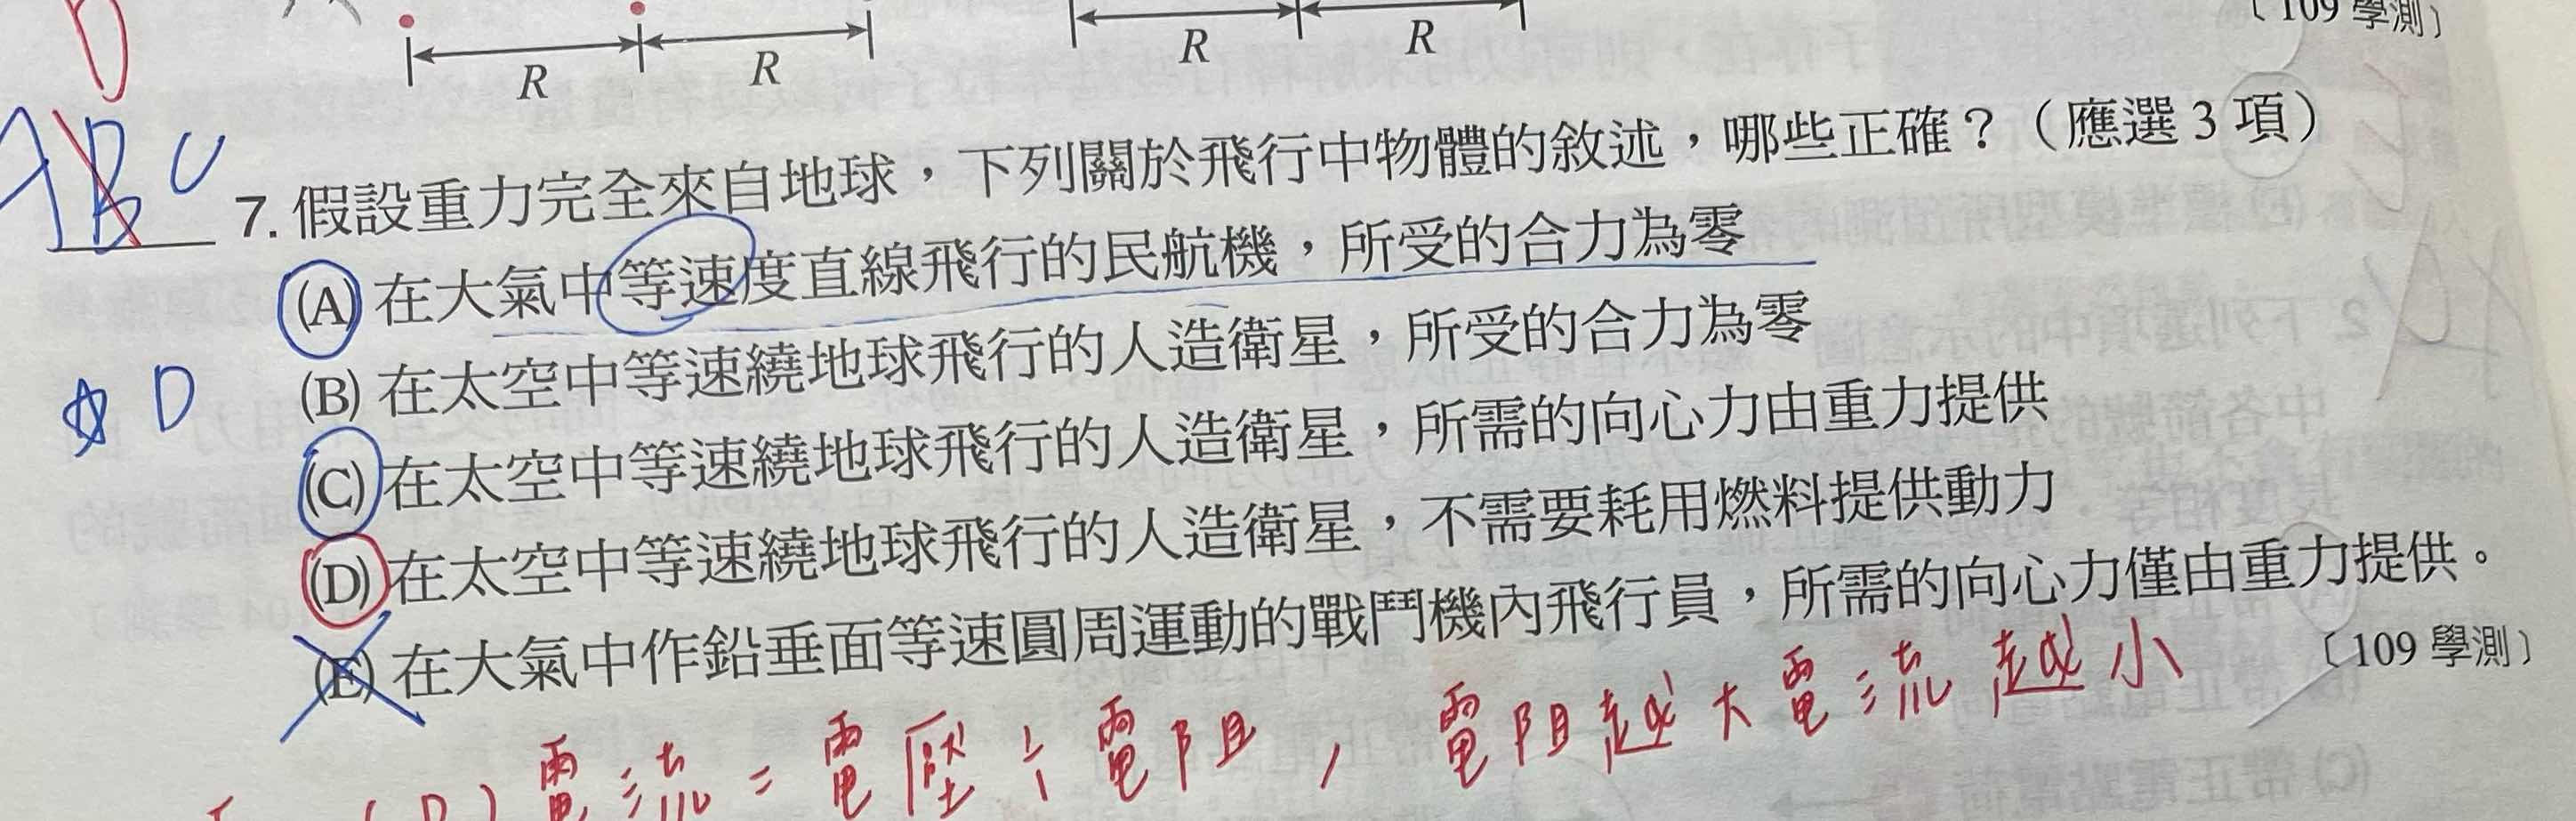 R R R R
〔109 學測〕
ABC
7. 假設重力完全來自地球，下列關於飛行中物體的敘述，哪些正確？（應選 3 項）
(A) 在大氣中等速度直線飛行的民航機，所受的合力為零
(B) 在太空中等速繞地球飛行的人造衛星，所受的合力為零
☆ D
(C) 在太空中等速繞地球飛行的人造衛星，所需的向心力由重力提供
(D) 在太空中等速繞地球飛行的人造衛星，不需要耗用燃料提供動力
(E) 在大氣中作鉛垂面等速圓周運動的戰鬥機內飛行員，所需的向心力僅由重力提供。
〔109 學測〕
(D) 電流 = 電壓 ÷ 電阻，電阻越大電流越小